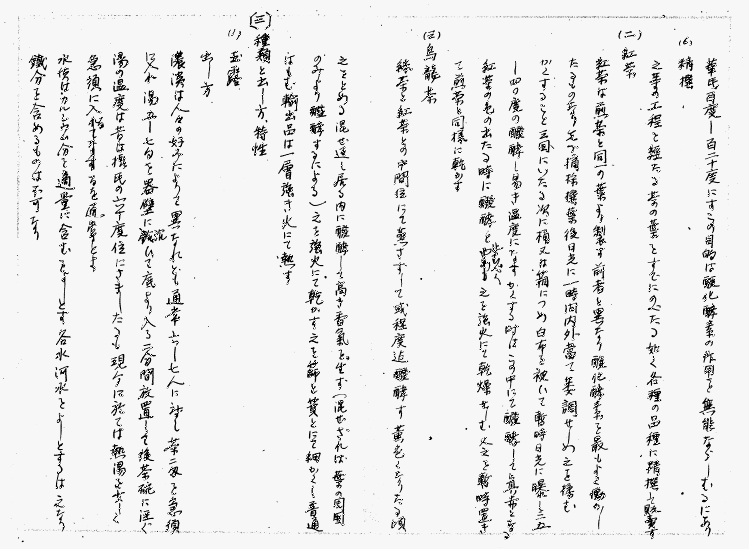 華氏百度―百二十度にすこの目的は酸化酵素の作用を無能ならしむるにあり
(6) 精撰
之等の工程を経たる茶の葉とすでにのべたる如く各種の品種に精撰し販売す
(二) 紅茶
紅茶は煎茶と同一の葉より製す前者と異なり酸化酵素を最もよく働かし
たるものなり先づ摘採揉葉後日光に一時間内外當て萎凋せしめ之を揉む
かくすること三回にいたる次に桶又は箱につめ白布を被いて暫時日光に曝し三五
―四〇度の醗酵し易き温度になすかくする時はこの中にて醗酵して
紅茶の色の出たる時に醗酵を 之を強火にて乾燥せしむ又之を暫時置き
て煎茶と同様に乾かす
(三) 烏龍茶
緑茶と紅茶との中間位にて蒸さずして或程度迄醗酵す黄色くなりたる頃
之をとめる混ぜ返し居る内に醗酵して高き香氣を生ず(混ぜざれば葉の周囲
のみより醗酵するによる)之を強火にて乾かす之を篩と箕とにて細かくし普通
はもむ輸出品は一層強き火にて熱す
[三] 種類と出し方、特性
(1) 玉露
出し方
濃淡は人々の好みによりて異なれども通常六―七人に対し茶 を急須
に入れ湯五―七勺を器壁に沿いて底より入る二分間放置して後茶碗に注ぐ
湯の温度は昔は摂氏の六十度位にさましたるも現今に於ては熱湯を少しく
急須に入れてさまするを通常とよる
水使はカルシウム分を適量に含むをよしとす谷水河水をよしとするは之なり
鐵分を含めるものは不可なり